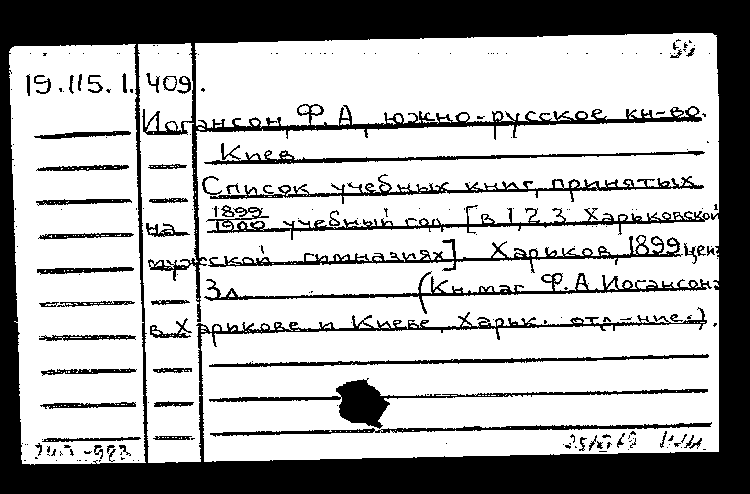 50
19.115.1.409.
Иогансон, Ф. А, южно-русское кн-во.
Киев.
Список учебных книг, принятых
на 1899/1900 учебный год [в 1, 2, 3 Харьковской
мужской гимназиях]. Харьков, 1899 ценз
3 л. (Кн. маг Ф. А. Иогансона
в Харикове и Киеве, Харьк. отд-ние.).